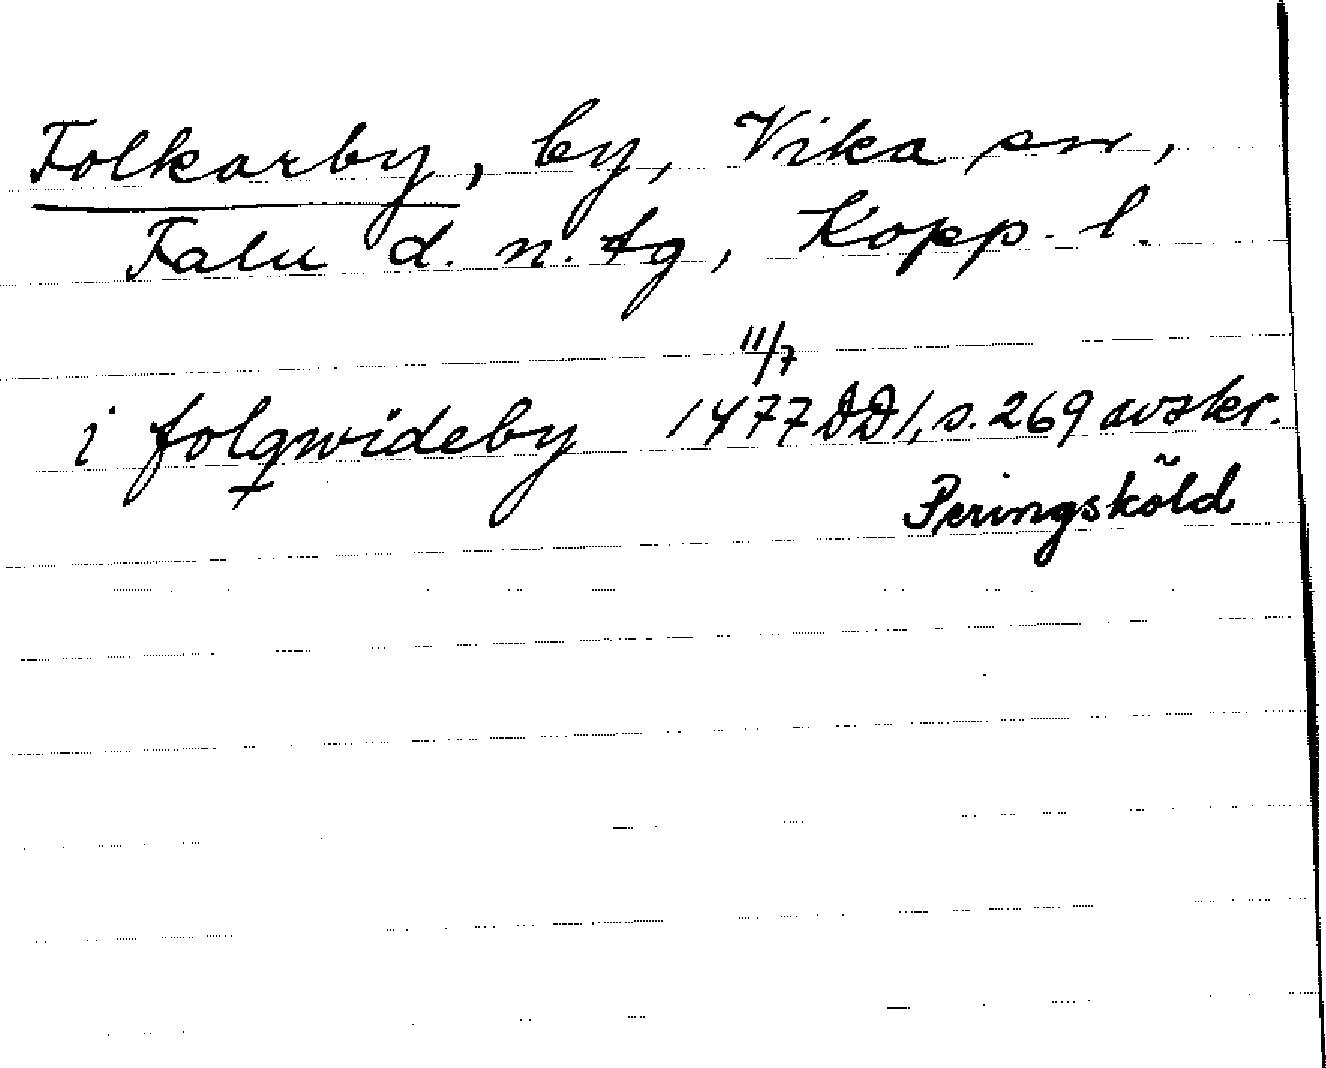 Folkarby, by, Vika sn,
Falu d. n. tg, Kopp. l.
11/7
i folqwideby 1477 DD 1, s. 269 avskr.
Peringsköld